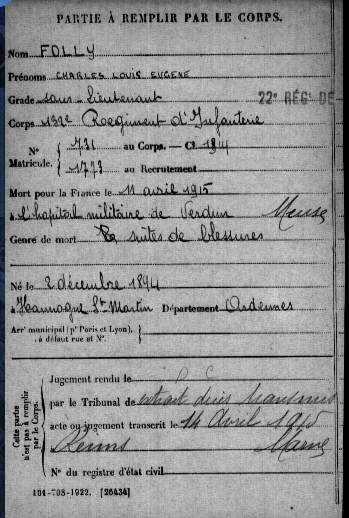 PARTIE À REMPLIR PAR LE CORPS.
Nom FOLLY
Prénoms CHARLES LOUIS EUGENE
Grade sous-lieutenant
22e RÉGt DE
Corps 132e Regiment d'Infanterie
N° 731 au Corps. — Cl. 1914
Matricule. 1773 au Recrutement
Mort pour la France le 11 avril 1915
à l'hopital militaire de Verdun Meuse
Genre de mort suites de blessures
Né le 2 décembre 1894
à Hannogne St Martin Département Ardennes
Arrt municipal (pr Paris et Lyon),
à défaut rue et N°.
Cette partie n'est pas à remplir par le Corps.
Jugement rendu le
par le Tribunal de extrait décès transmis
acte ou jugement transcrit le 14 avril 1915
Reims Marne
N° du registre d'état civil
101-708-1922. [26434]